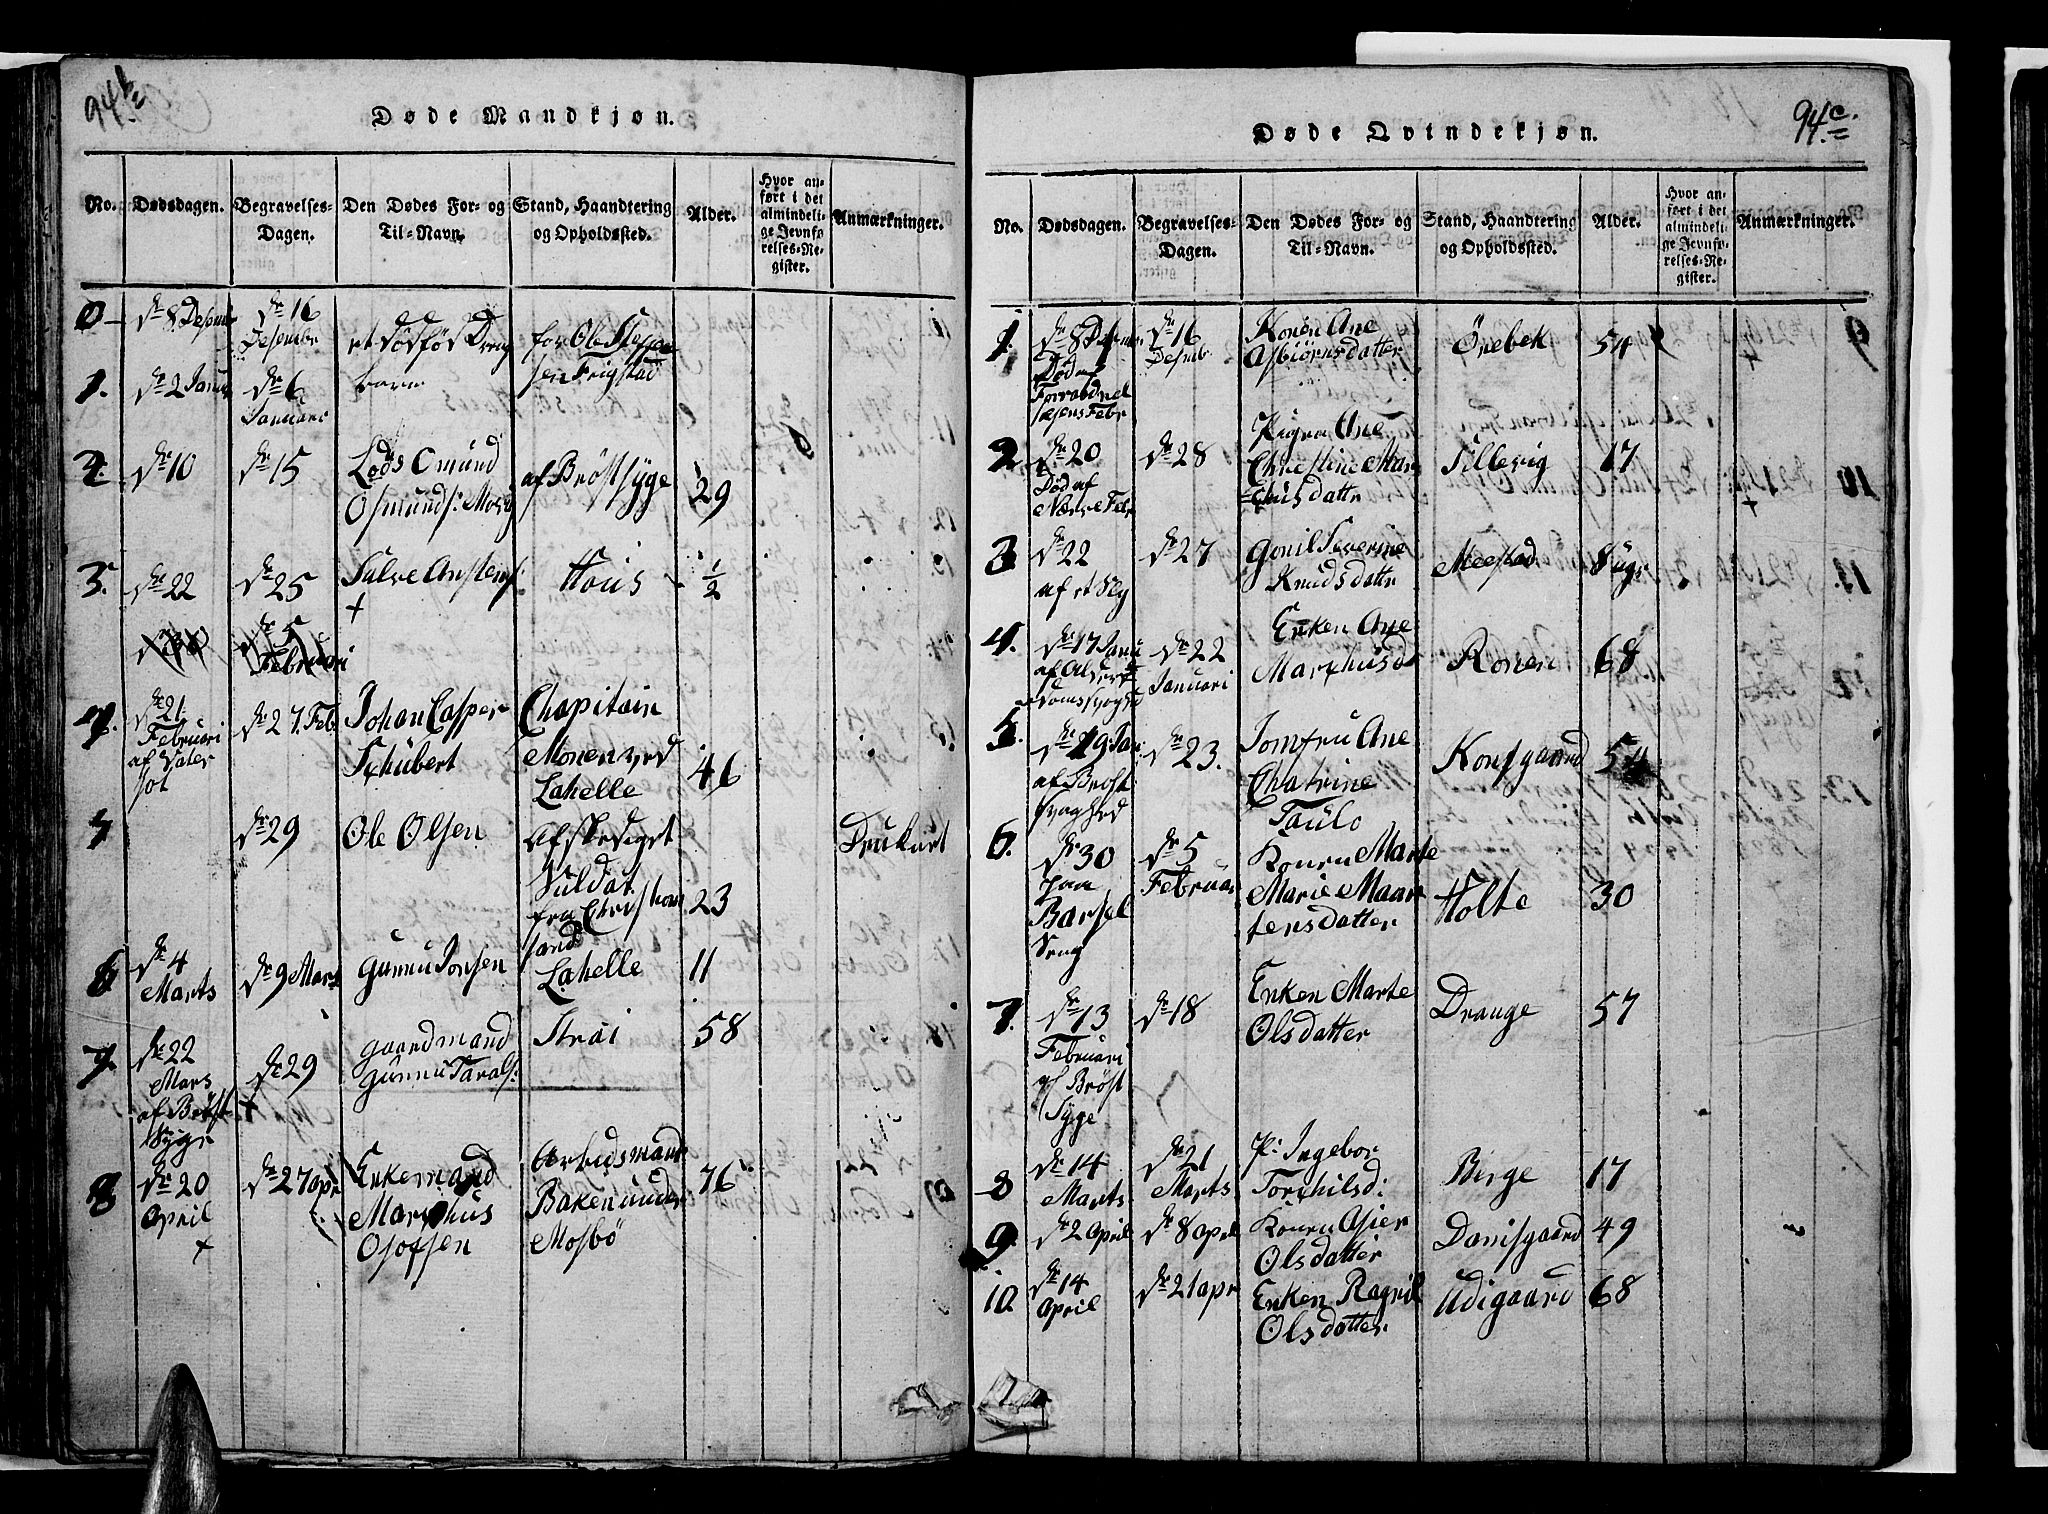 94b.
Døde Mandkjøn.
No.
Dødsdagen.
Begravelses-
Dagen.
Den Dødes For- og
Til-Navn.
Stand, Haandtering
og Opholdssted.
Alder.
Hvor an-
ført i det
almindeli-
ge Jevnfø-
relses-Re-
gister.
Anmærkninger.
0
dn 8 Desemb
dn 16
Desembr
et dødfød Dreng
barn
for Ole
sen Frigstad
1.
dn 2 Janu
dn 6
Januari
2.
dn 10
dn 15
Lods Omund
Osmunds:
af Bröstsyge
29
3.
dn 22
dn 25
Salve
+
Höis
1/2
dn 5
Februari
4.
dn 21
Februari
af Vater
sot
dn 27. Feb
Johan Casper
Schübert
Chapitain
Monen ved
Lahelle
46
5
dn 29
Ole Olsen
Afskediget
Suldat
fra Christian
sand
23
Druknet
6
dn 4
Marts
dn 9 Marts
Gunnu Jonsen
Lahelle
11
7.
dn 22
Mars
af Bröst
Syge
dn 29
+
gaardmand
Gunnu Tarals:
Strai
58
8
dn 20
April
+
dn 27 apr
Enkemand
Marchus
Osofsen
Arbeidsmand
Baken under
Mosbö
76
94c.
Døde Qvindekjøn.
No.
Dødsdagen.
Begravelses-
Dagen.
Den Dødes For- og
Til-Navn.
Stand, Haandtering
og Opholdssted.
Alder.
Hvor an-
ført i det
almindeli-
ge Jevnfø-
relses-Re-
gister.
Anmærkninger.
1.
dn 8 Desemr
Död af
Forraadnel
sesens Febr
dn 16
Desemb
Konen Ane
Asbiörnsdatter
Önebek
54
2
dn 20
Död af
Nerve Febr
dn 28
Pigen Ane
Christine Mar
chusdattr
Tillevig
17
3
dn 22
af et Slag
dn 27
Gonil Severine
Knudsdattr
Meestad
8 ugr
4.
dn 17 Janu
af Alder
domssvaghd
dn 22
Januari
Enken Ane
Marchusd
Ronen
68
5.
dn 19 Jan
af Bröst
svaghed
dn 23.
Jomfru Ane
Chatrine
Taulo
Konsgaard
54
6.
dn 30
paa
Barsel
Seng
dn 5
Februar
Konen Marte
Marie Maar
tensdatter
Holte
30
7.
dn 13
Februari
af Bröst
Syge
dn 18
Enken Marte
Olsdatter
Drange
57
8
dn 14
Marts
dn 21
Marts
P: Ingebor
Torchilsd:
Birge
17
9.
dn 2 April
dn 8 April
Konen Asier
Olsdatter
Danisgaard
49
10.
dn 14
April
dn 21 apr
Enken Ragnil
Olsdatter
Udigaard
68